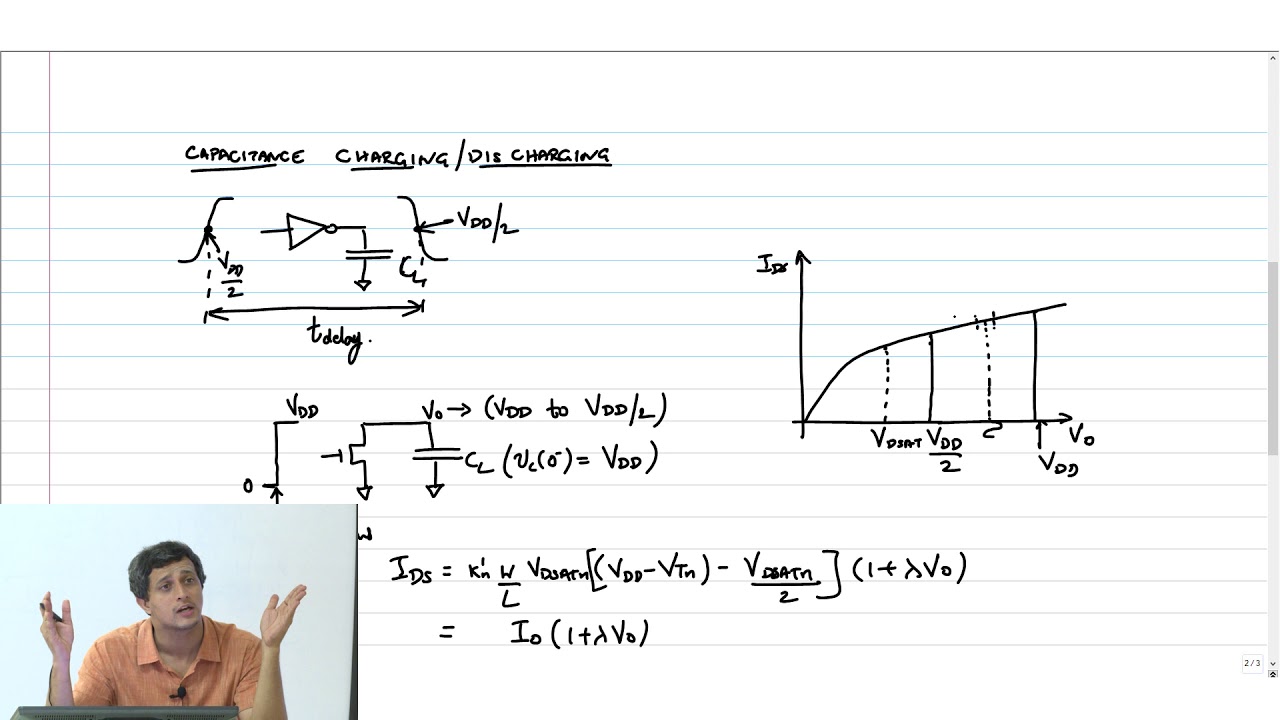 CAPACITANCE CHARGING/DISCHARGING
VDD/2
VDD/2
CL
tdelay.
IDS
VDSAT VDD/2
V0
VDD
VDD
V0 → (VDD to VDD/2)
CL (vc(0-) = VDD)
0
W
IDS = K'n W/L VDSATn[(VDD-VTn) - VDSATn/2] (1+λV0)
= I0(1+λV0)
2/3